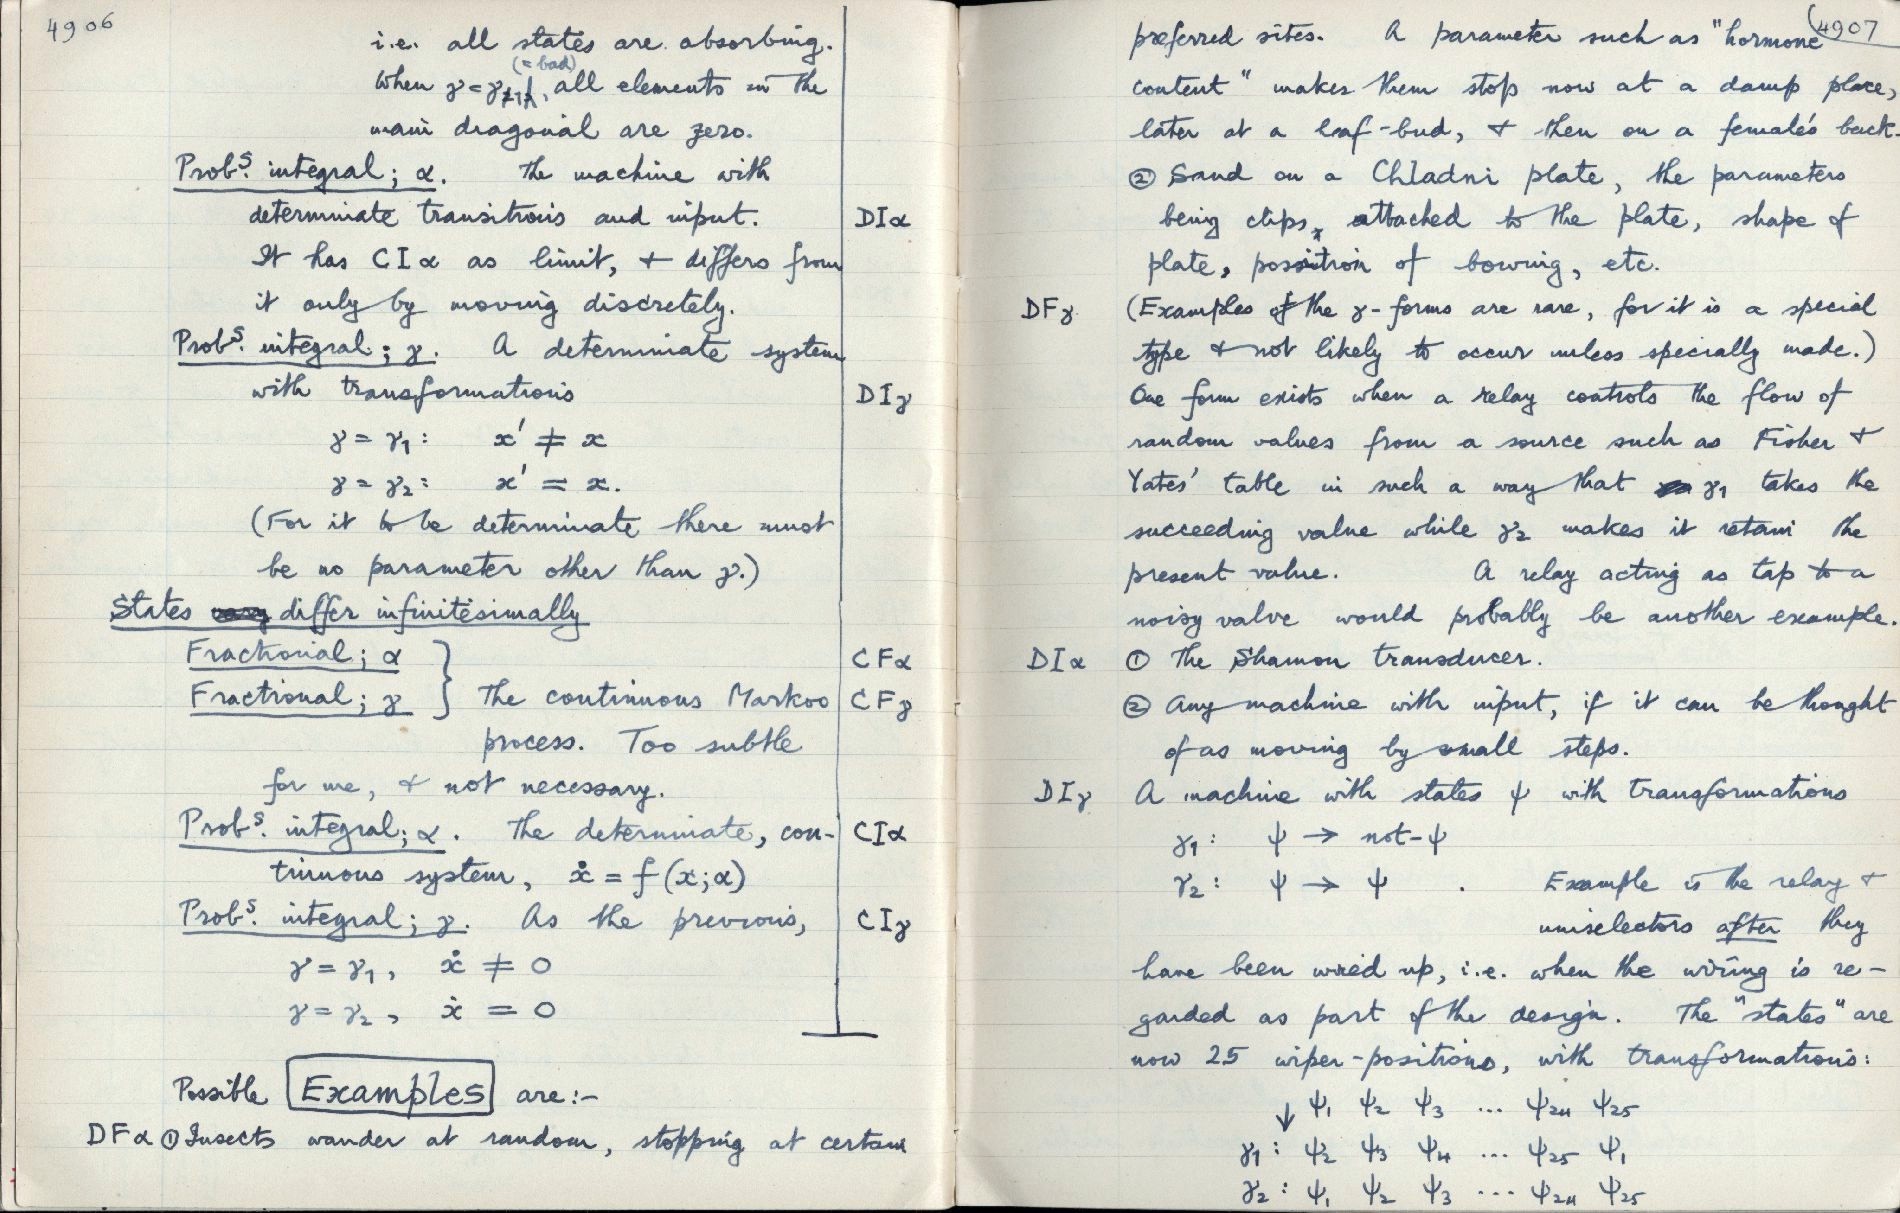 4906
i.e. all states are absorbing.
(= bad)
When γ = γ1, all elements in the
main diagonal are zero.
Probs. integral; α. The machine with
determinate transitions and input. DIα
It has CIα as limit, & differs from
it only by moving discretely.
Probs. integral; γ. A determinate system
with transformations DIγ
γ = γ1: x' ≠ x
γ = γ2: x' = x.
(For it to be determinate there must
be no parameter other than γ.)
States differ infinitesimally
Fractional; α CFα
Fractional; γ } The continuous Markov CFγ
process. Too subtle
for me, & not necessary.
Probs. integral; α. The determinate, con- CIα
tinuous system, ẋ = f(x; α)
Probs. integral; γ. As the previous, CIγ
γ = γ1, ẋ ≠ 0
γ = γ2, ẋ = 0
Possible Examples are:-
DFα ① Insects wander at random, stopping at certain
4907
preferred sites. A parameter such as "hormone
content" makes them stop now at a damp place,
later at a leaf-bud, & then on a female's back.
② Sand on a Chladni plate, the parameters
being clips, attached to the plate, shape of
plate, position of bowing, etc.
DFγ (Examples of the γ-forms are rare, for it is a special
type & not likely to occur unless specially made.)
One form exists when a relay controls the flow of
random values from a source such as Fisher &
Yates' table in such a way that γ1 takes the
succeeding value while γ2 makes it retain the
present value. A relay acting as tap to a
noisy valve would probably be another example.
DIα ① The Shannon transducer.
② Any machine with input, if it can be thought
of as moving by small steps.
DIγ A machine with states ψ with transformations
γ1: ψ → not-ψ
γ2: ψ → ψ . Example is the relay &
uniselectors after they
have been wired up, i.e. when the wiring is re-
garded as part of the design. The "states" are
now 25 wiper-positions, with transformations:
↓ ψ1 ψ2 ψ3 ... ψ24 ψ25
γ1: ψ2 ψ3 ψ4 ... ψ25 ψ1
γ2: ψ1 ψ2 ψ3 ... ψ24 ψ25